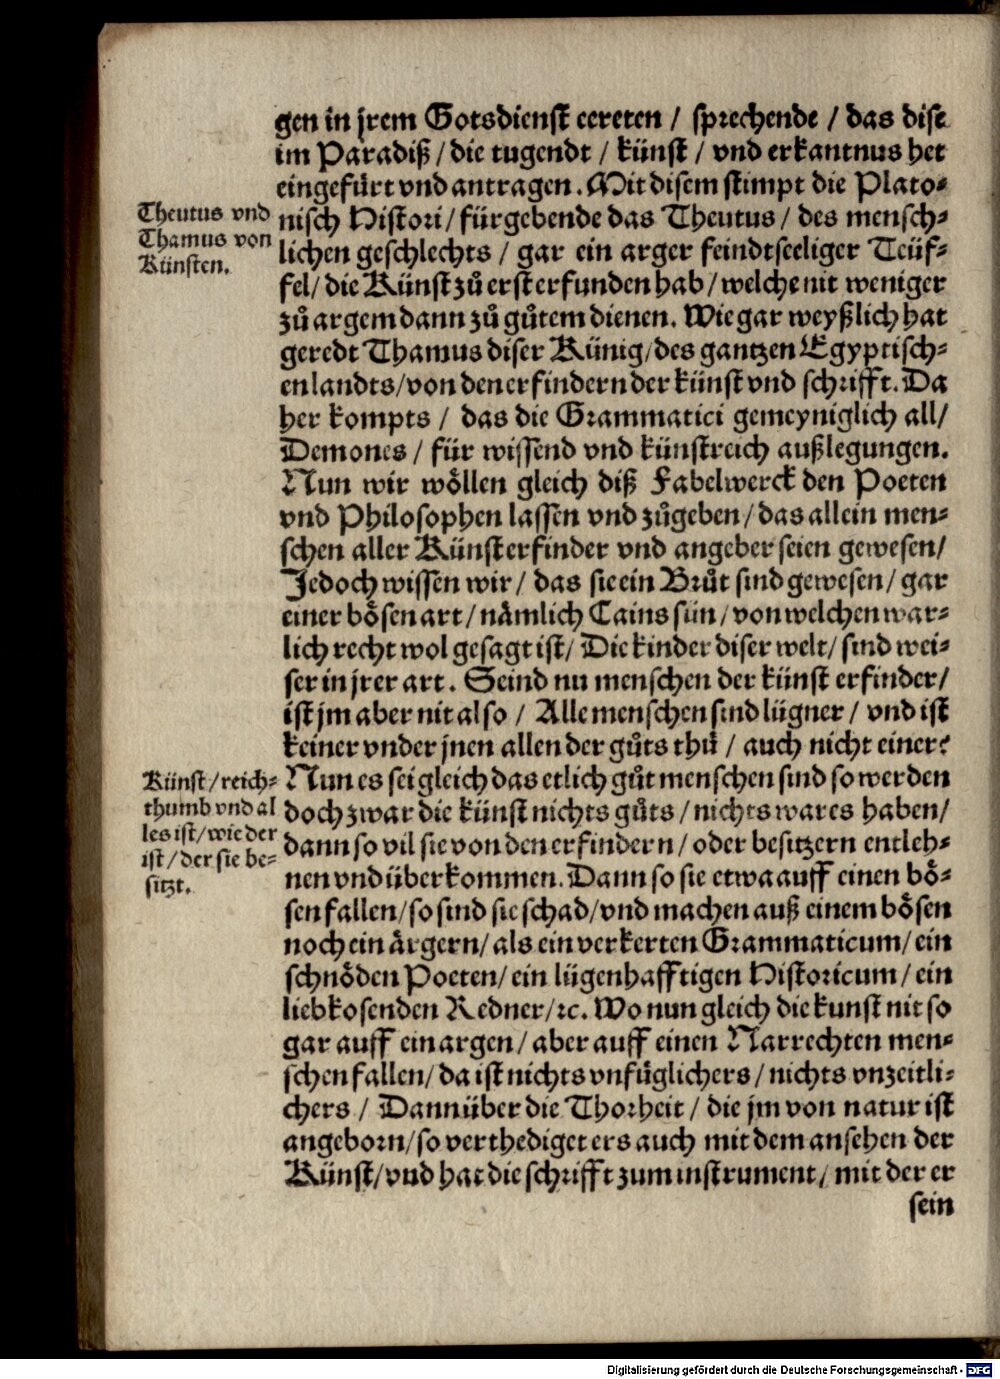 gen in jrem Gotsdienst eereten / sprechende / das dise
im Paradiß / die tugendt / künst / vnd erkantnus het
eingefürt vnd antragen. Mit disem stimpt die Plato-
Theutus vnd
Thamus von
Künsten.
nisch Histori / fürgebende das Theutus / des mensch-
lichen geschlechts / gar ein arger feindtseeliger Teüf-
fel / die Künst zů erst erfunden hab / welche nit weniger
zů argem dann zů gůtem dienen. Wie gar weyßlich hat
geredt Thamus diser Künig / des gantzen Egyptisch-
en landts / von den erfindern der künst vnd schrifft. Da
her kompts / das die Grammatici gemeyniglich all /
Demones / für wissend vnd künstreich außlegungen.
Nun wir wöllen gleich diß Fabelwerck den Poeten
vnd Philosophen lassen vnd zůgeben / das allein men-
schen aller Künst erfinder vnd angeber seien gewesen /
Jedoch wissen wir / das sie ein Brůt sind gewesen / gar
einer bösen art / nämlich Cains sün / von welchen war-
lich recht wol gesagt ist / Die kinder diser welt / sind wei-
ser in jrer art. Seind nu menschen der künst erfinder /
ist jm aber nit also / Alle menschen sind lügner / vnd ist
keiner vnder jnen allen der gůts thů / auch nicht einer?
Künst / reich-
thumb vnd al
les ist / wie der
ist / der sie be-
sitzt.
Nun es sei gleich das etlich gůt menschen sind so werden
doch zwar die künst nichts gůts / nichts wares haben /
dann so vil sie von den erfindern / oder besitzern entleh-
nen vnd überkommen. Dann so sie etwa auff einen bö-
sen fallen / so sind sie schad / vnd machen auß einem bösen
noch ein ärgern / als ein verkerten Grammaticum / ein
schnöden Poeten / ein lügenhafftigen Historicum / ein
liebkosenden Redner / ꝛc. Wo nun gleich die kunst nit so
gar auff ein argen / aber auff einen Narrechten men-
schen fallen / da ist nichts vnfüglichers / nichts vnzeitli-
chers / Dann über die Thorheit / die jm von natur ist
angeborn / so verthediget ers auch mit dem ansehen der
Künst / vnd hat die schrifft zum instrument / mit der er
sein
Digitalisierung gefördert durch die Deutsche Forschungsgemeinschaft - DFG